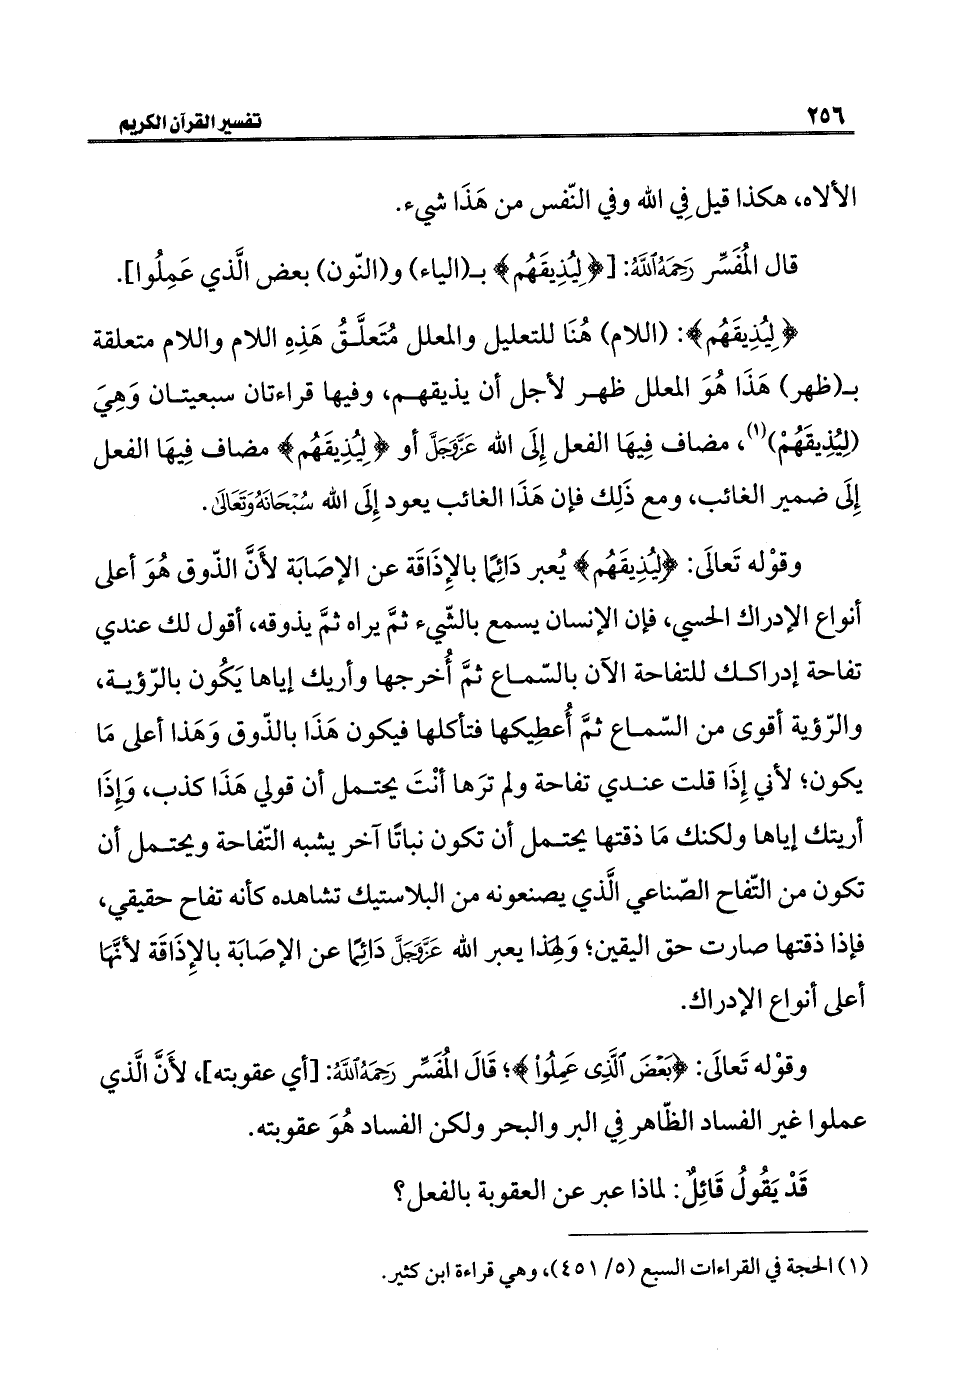 ٢٥٦
تفسير القرآن الكريم
الألاه، هكذا قيل فِي الله وفي النّفس من هَذَا شيء.
قال الْمُفَسِّر رَحِمَهُ اللَّهُ: [﴿لِيُذِيقَهُم﴾ بـ(الياء) و(النّون) بعض الَّذي عَمِلُوا].
﴿لِيُذِيقَهُم﴾: (اللام) هُنَا للتعليل والمعلل مُتَعلَّقُ هَذِهِ اللام واللام متعلقة
بـ(ظهر) هَذَا هُوَ المعلل ظهر لأجل أن يذيقهم، وفيها قراءتان سبعيتان وَهِيَ
(لِيُذِيقَهُمْ)(١)، مضاف فِيهَا الفعل إِلَى الله عَزَّوَجَلَّ أو ﴿لِيُذِيقَهُم﴾ مضاف فِيهَا الفعل
إِلَى ضمير الغائب، ومع ذَلِك فإن هَذَا الغائب يعود إِلَى الله سُبْحَانَهُ وَتَعَالَى.
وقوْله تَعَالَى: ﴿لِيُذِيقَهُم﴾ يُعبر دَائِمًا بالإِذَاقَة عن الإِصَابَة لأَنَّ الذّوق هُوَ أعلى
أنواع الإدراك الحسي، فإن الإنسان يسمع بالشّيء ثمَّ يراه ثمَّ يذوقه، أقول لك عندي
تفاحة إدراكك للتفاحة الآن بالسّماع ثمَّ أُخرجها وأريك إياها يَكُون بالرّؤية،
والرّؤية أقوى من السّماع ثمَّ أُعطِيكها فتأكلها فيكون هَذَا بالذّوق وَهَذا أعلى مَا
يكون؛ لأني إِذَا قلت عندي تفاحة ولم ترَها أنْتَ يحتمل أن قولي هَذَا كذب، وَإِذَا
أريتك إياها ولكنك مَا ذقتها يحتمل أن تكون نباتًا آخر يشبه التّفاحة ويحتمل أن
تكون من التّفاح الصّناعي الَّذي يصنعونه من البلاستيك تشاهده كأنه تفاح حقيقي،
فإذا ذقتها صارت حق اليقين؛ وَلِهَذا يعبر الله عَزَّوَجَلَّ دَائِمًا عن الإصَابَة بالإِذَاقَة لأنَّهَا
أعلى أنواع الإدراك.
وقوْله تَعَالَى: ﴿بَعْضَ ٱلَّذِى عَمِلُوا۟﴾؛ قَالَ الْمُفَسِّر رَحِمَهُ اللَّهُ: [أي عقوبته]، لأَنَّ الَّذي
عملوا غير الفساد الظّاهر فِي البر والبحر ولكن الفساد هُوَ عقوبته.
قَدْ يَقُولُ قَائِلٌ: لماذا عبر عن العقوبة بالفعل؟
(١) الحجة في القراءات السبع (٥/ ٤٥١)، وهي قراءة ابن كثير.